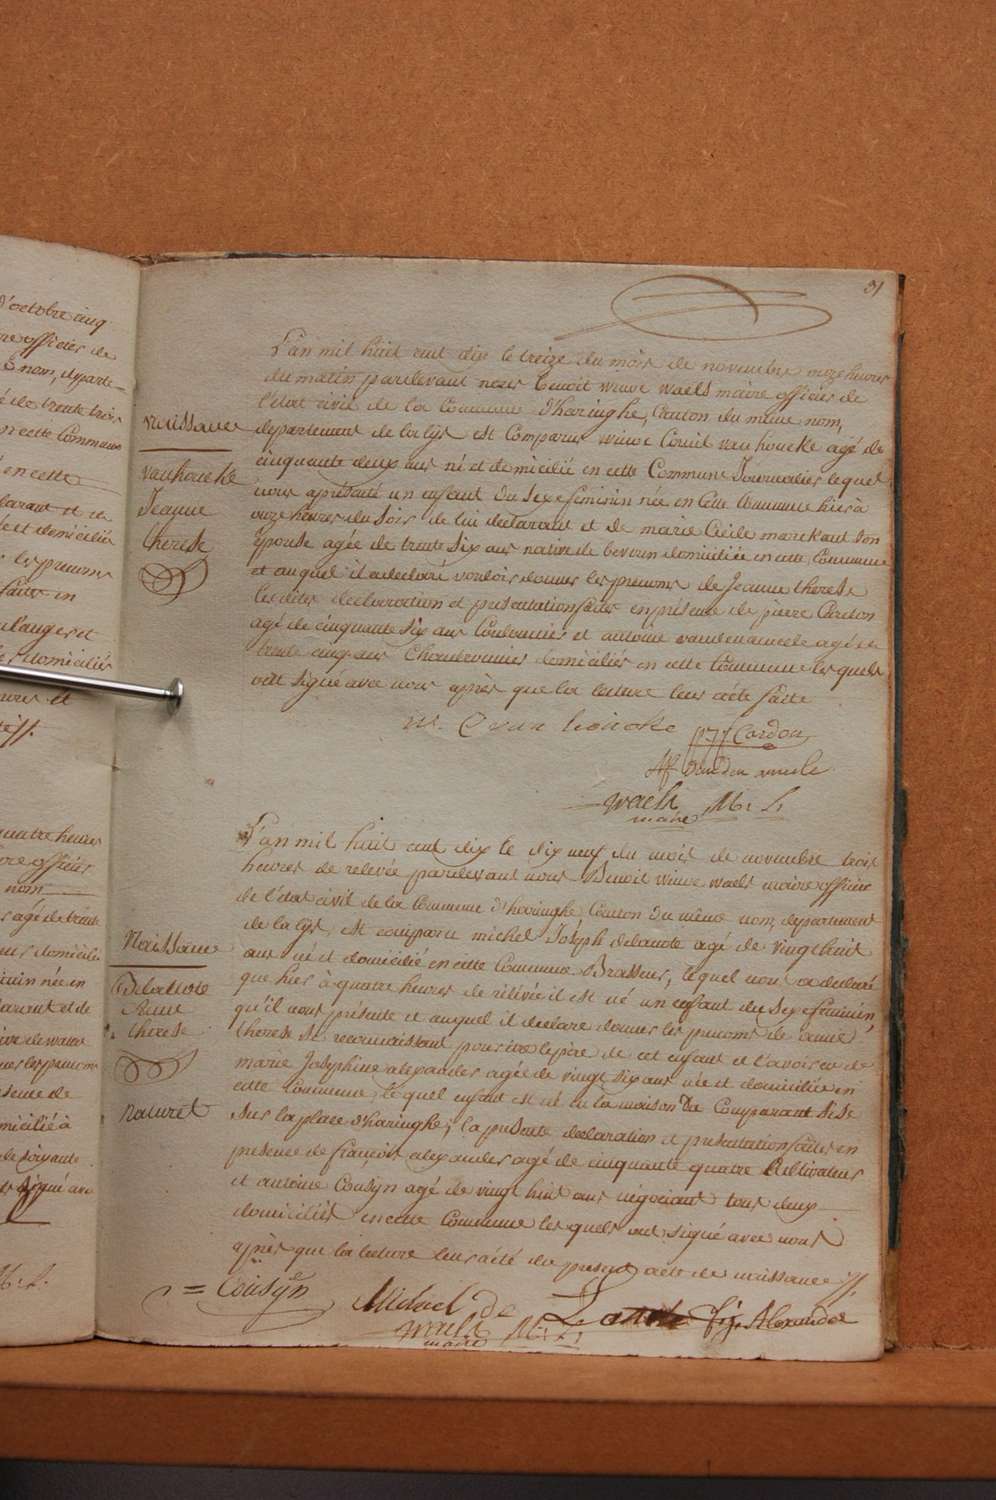 d'octobre cinq
officier de
nom, departe-
de trente trois
en cette Commune
en cette
declarant et de
et domiciliée
les prenoms
faites en
boulanger et
domiciliés
et
quatre heures
officier
nom
agé de trente
domicilié
née en
declarant et de
les prenoms
presence de
domicilié à
de soixante
signé avec
M. L.
31
L'an mil huit cent dix le treize du mois de novembre onze heures
du matin pardevant nous Benoit winoc Waels maire officier de
l'état civil de la Commune d'haringhe, Canton du même nom,
departement de la lys est Comparu winoc Cornil van houcke agé de
cinquante deux ans né et domicilié en cette Commune Journalier lequel
nous a présenté un enfant du sexe feminin née en Cette Commune hier à
onze heures du soir de lui declarant et de marie Cecile marckant son
épouse agée de trente six ans native de beveren domiciliée en cette Commune
et auquel il a declaré vouloir donner les prenoms de Jeanne therese
lesdites declaration et presentation faites en présence de pierre Cardon
agé de cinquante six ans Cordonnier et antoine agé de
trente cinq ans domiciliés en cette Commune lesquels
ont signé avec nous après que la lecture leur a été faite
naissance
vanhoucke
Jeanne
therese
W. C van houcke
Cordon
waels M. L.
maire
L'an mil huit cent dix le dix neuf du mois de novembre trois
heures de relevée pardevant nous Benoit winoc waels maire officier
de l'état civil de la Commune d'haringhe, Canton du même nom, departement
de la lys, est comparu michel Joseph delanote agé de vingt huit
ans né et domicilié en cette Commune Brasseur, lequel nous a declaré
que hier à quatre heures de relévée il est né un enfant du sexe feminin,
qu'il nous présente et auquel il declare donner les prenoms de anne
therese se reconnaissant pour être le père de cet enfant et l'avoir eu de
marie Josephine alexander agée de vingt six ans née et domiciliée en
cette Commune, lequel enfant est né en la maison du Comparant sise
sur la place d'haringhe; la presente declaration et presentation faites en
presence de françois alexander agé de cinquante quatre Cultivateur
et antoine Cousyn agé de vingt huit ans négociant tous deux
domiciliés en cette Commune lesquels ont signé avec nous
après que la lecture leur a été du present acte de naissance
Naissance
delanote
Anne
therese
naturel
Cousyn
Michael de Lanote Alexander
waels M. L.
maire